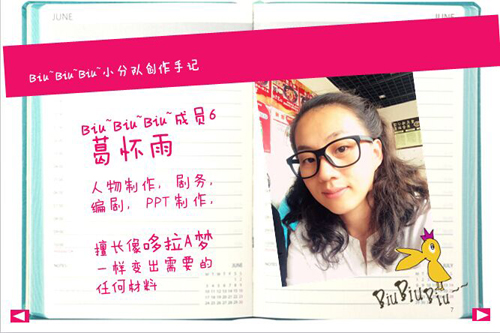 JUNE
Biu~Biu~Biu~小分队创作手记
Biu~Biu~Biu~成员6
葛怀雨
人物制作，剧务，
编剧，PPT制作，
擅长像哆拉A梦
一样变出需要的
任何材料
JUNE
BiuBiuBiu~~
7